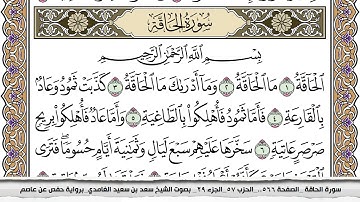 سُورَةُ الْحَاقَّةِ
بِسْمِ اللَّهِ الرَّحْمَٰنِ الرَّحِيمِ
الْحَاقَّةُ ١ مَا الْحَاقَّةُ ٢ وَمَا أَدْرَاكَ مَا الْحَاقَّةُ ٣ كَذَّبَتْ ثَمُودُ وَعَادٌ
بِالْقَارِعَةِ ٤ فَأَمَّا ثَمُودُ فَأُهْلِكُوا بِالطَّاغِيَةِ ٥ وَأَمَّا عَادٌ فَأُهْلِكُوا بِرِيحٍ
صَرْصَرٍ عَاتِيَةٍ ٦ سَخَّرَهَا عَلَيْهِمْ سَبْعَ لَيَالٍ وَثَمَانِيَةَ أَيَّامٍ حُسُومًا ۖ فَتَرَى
سورة الحاقة _ الصفحة ٥٦٦ .. الحزب ٥٧ _ الجزء ٢٩ . بصوت الشيخ سعد بن سعيد الغامدي . برواية حفص عن عاصم